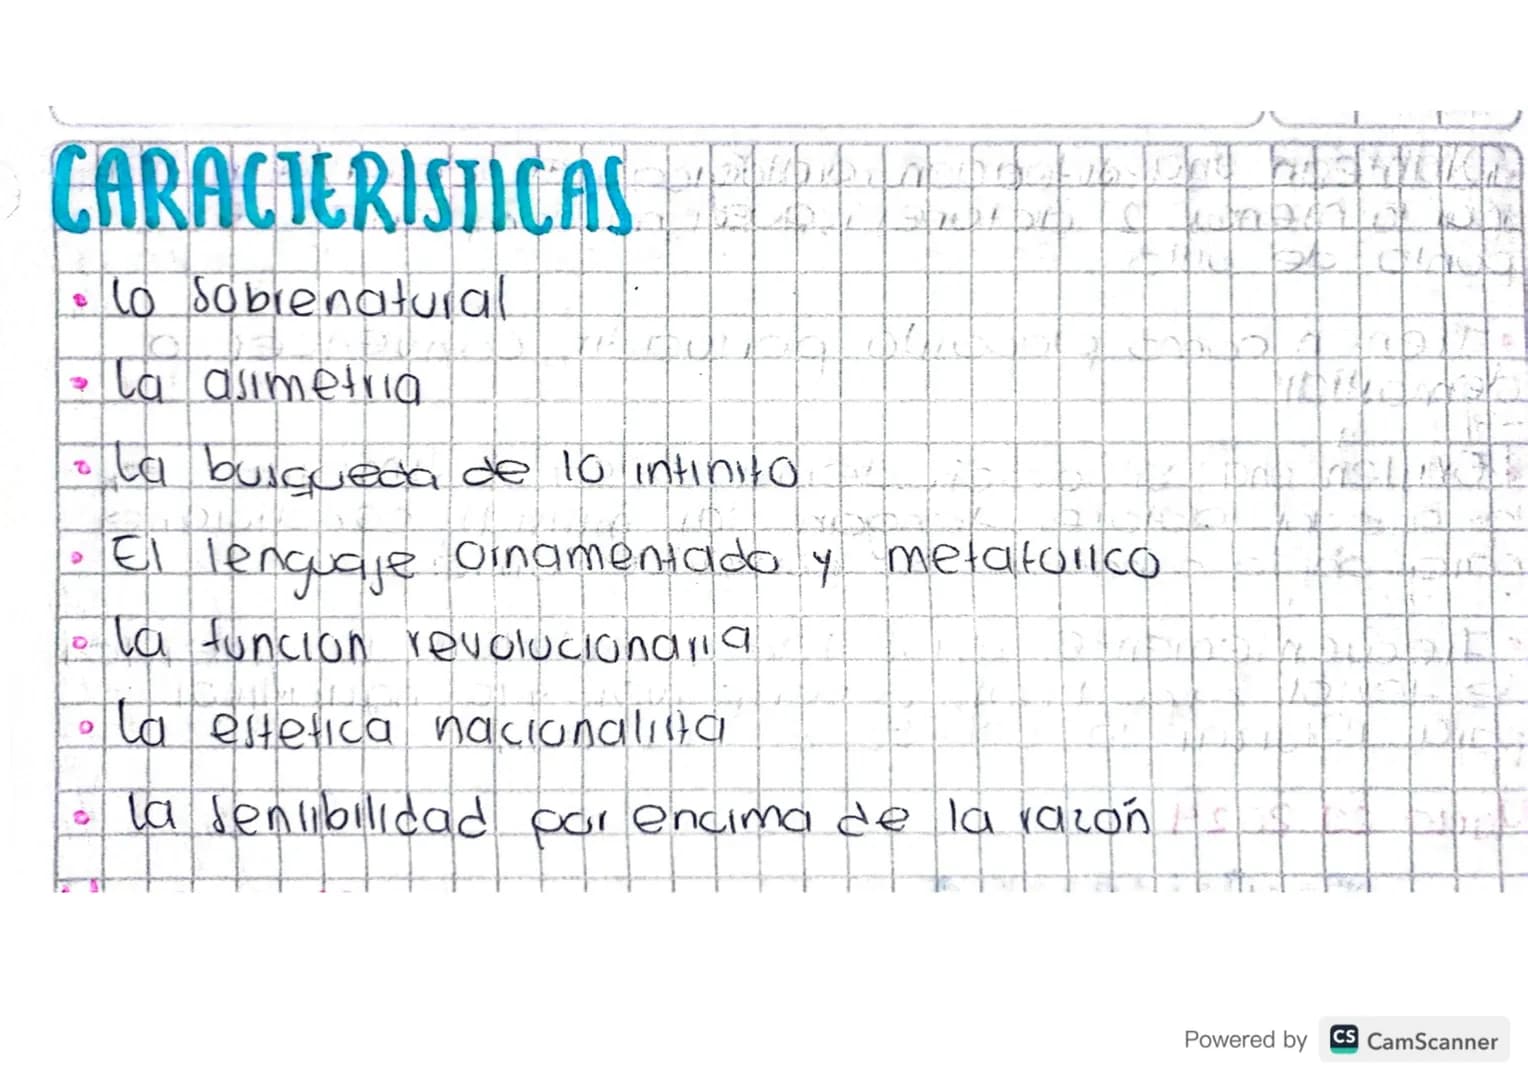 CARACTERISTICAS
• lo sobrenatural
• La asimetria
• La busqueda de lo infinito
• El lenguaje ornamentado y metaforico
• La funcion revolucionaria
• La estetica nacionalista
• La sensibilidad por encima de la razón
Powered by CS CamScanner